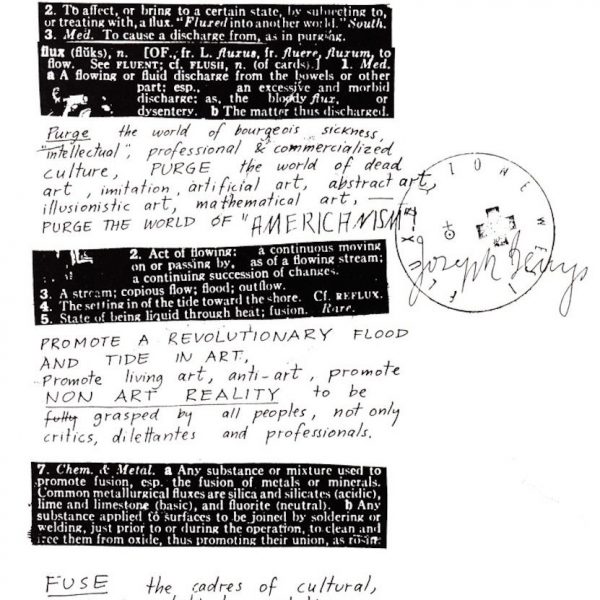 2. To affect, or bring to a certain state, by subjecting to,
or treating with, a flux. "Fluxed into another world." South.
3. Med. To cause a discharge from, as in purging.
flux (flŭks), n. [OF., fr. L. fluxus, fr. fluere, fluxum, to
flow. See FLUENT; cf. FLUSH, n. (of cards).] 1. Med.
a A flowing or fluid discharge from the bowels or other
part: esp., an excessive and morbid
discharge: as, the bloody flux, or
dysentery. b The matter thus discharged.
Purge the world of bourgeois sickness,
"intellectual", professional & commercialized
culture, PURGE the world of dead
art, imitation, artificial art, abstract art,
illusionistic art, mathematical art, —
PURGE THE WORLD OF "AMERICANISM"
Joseph Beuys
2. Act of flowing: a continuous moving
on or passing by, as of a flowing stream;
a continuing succession of changes.
3. A stream; copious flow; flood; outflow.
4. The setting in of the tide toward the shore. Cf. REFLUX.
5. State of being liquid through heat; fusion. Rare.
PROMOTE A REVOLUTIONARY FLOOD
AND TIDE IN ART,
Promote living art, anti-art, promote
NON ART REALITY to be
fully grasped by all peoples, not only
critics, dilettantes and professionals.
7. Chem. & Metal. a Any substance or mixture used to
promote fusion, esp. the fusion of metals or minerals.
Common metallurgical fluxes are silica and silicates (acidic),
lime and limestone (basic), and fluorite (neutral). b Any
substance applied to surfaces to be joined by soldering or
welding, just prior to or during the operation, to clean and
free them from oxide, thus promoting their union, as rosin.
FUSE the cadres of cultural,